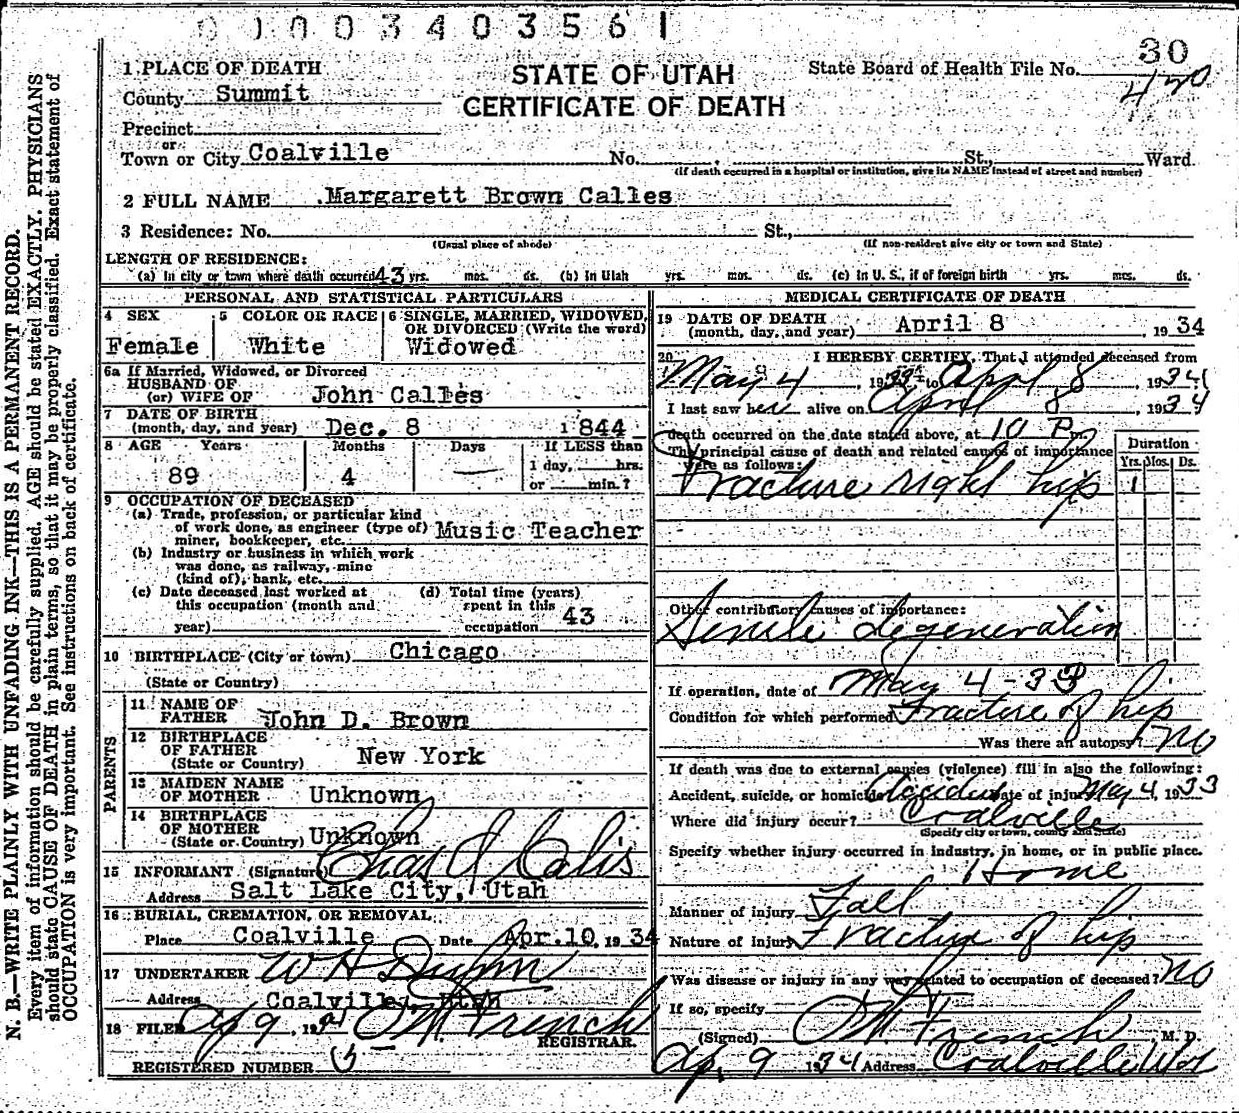 0 1 0 0 3 4 0 3 5 6 1
30
420
STATE OF UTAH
CERTIFICATE OF DEATH
State Board of Health File No.
1 PLACE OF DEATH
County Summit
Precinct
or
Town or City Coalville No. St., Ward.
(If death occurred in a hospital or institution, give its NAME instead of street and number)
2 FULL NAME Margarett Brown Calles
3 Residence: No. St.,
(Usual place of abode) (If non-resident give city or town and State)
LENGTH OF RESIDENCE:
(a) In city or town where death occurred 43 yrs. mos. ds. (b) In Utah yrs. mos. ds. (c) In U. S., if of foreign birth yrs. mos. ds.
PERSONAL AND STATISTICAL PARTICULARS
4 SEX 5 COLOR OR RACE 6 SINGLE, MARRIED, WIDOWED,
OR DIVORCED (Write the word)
Female White Widowed
6a If Married, Widowed, or Divorced
HUSBAND OF
(or) WIFE OF John Calles
7 DATE OF BIRTH
(month, day, and year) Dec. 8 1844
8 AGE Years Months Days If LESS than
1 day, hrs.
89 4 — or min.?
9 OCCUPATION OF DECEASED
(a) Trade, profession, or particular kind
of work done, as engineer (type of) Music Teacher
miner, bookkeeper, etc.
(b) Industry or business in which work
was done, as railway, mine
(kind of), bank, etc.
(c) Date deceased last worked at (d) Total time (years)
this occupation (month and spent in this
year) occupation 43
10 BIRTHPLACE (City or town) Chicago
(State or Country)
PARENTS
11 NAME OF
FATHER John D. Brown
12 BIRTHPLACE
OF FATHER New York
(State or Country)
13 MAIDEN NAME
OF MOTHER Unknown
14 BIRTHPLACE
OF MOTHER
(State or Country Unknown
15 INFORMANT (Signature) Chas J Calis
Address Salt Lake City, Utah
16 BURIAL, CREMATION, OR REMOVAL
Place Coalville Date Apr.10, 1934
17 UNDERTAKER W H
Address Coalville, Utah
18 FILED Ap 9, 19 O M French
REGISTRAR.
REGISTERED NUMBER 5
MEDICAL CERTIFICATE OF DEATH
19 DATE OF DEATH
(month, day, and year) April 8 1934
20 I HEREBY CERTIFY, That I attended deceased from
May 4, 1933 to April 8, 1934
I last saw her alive on April 8, 1934
death occurred on the date stated above, at 10 P m.
The principal cause of death and related causes of importance
were as follows:
Duration
Yrs. Mos. Ds.
Fracture right hip 1
Other contributory causes of importance:
Senile degeneration
If operation, date of May 4-33
Condition for which performed Fracture of hip
Was there an autopsy? No
If death was due to external causes (violence) fill in also the following:
Accident, suicide, or homicide Accident Date of injury May 4, 1933
Where did injury occur? Coalville
(Specify city or town, county and State)
Specify whether injury occurred in industry, in home, or in public place.
Home
Manner of injury Fall
Nature of injury Fracture of hip
Was disease or injury in any way related to occupation of deceased? No
If so, specify
(Signed) O M French M. D.
Ap. 9 1934 Address Coalville Utah
N. B.—WRITE PLAINLY WITH UNFADING INK—THIS IS A PERMANENT RECORD.
Every item of information should be carefully supplied. AGE should be stated EXACTLY. PHYSICIANS
should state CAUSE OF DEATH in plain terms, so that it may be properly classified. Exact statement of
OCCUPATION is very important. See instructions on back of certificate.